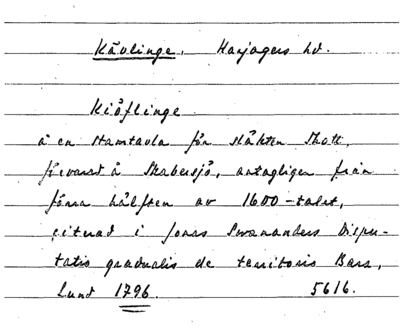 Kävlinge. Harjagers hd.
Kiöflinge
å en stamtavla för släkten Thott,
förvarad å Skabersjö, antagligen från
förra hälften av 1600-talet,
citerad i Jonas Swananders Dispu-
tatio gradualis de territorio Bara,
Lund 1796. 5616.